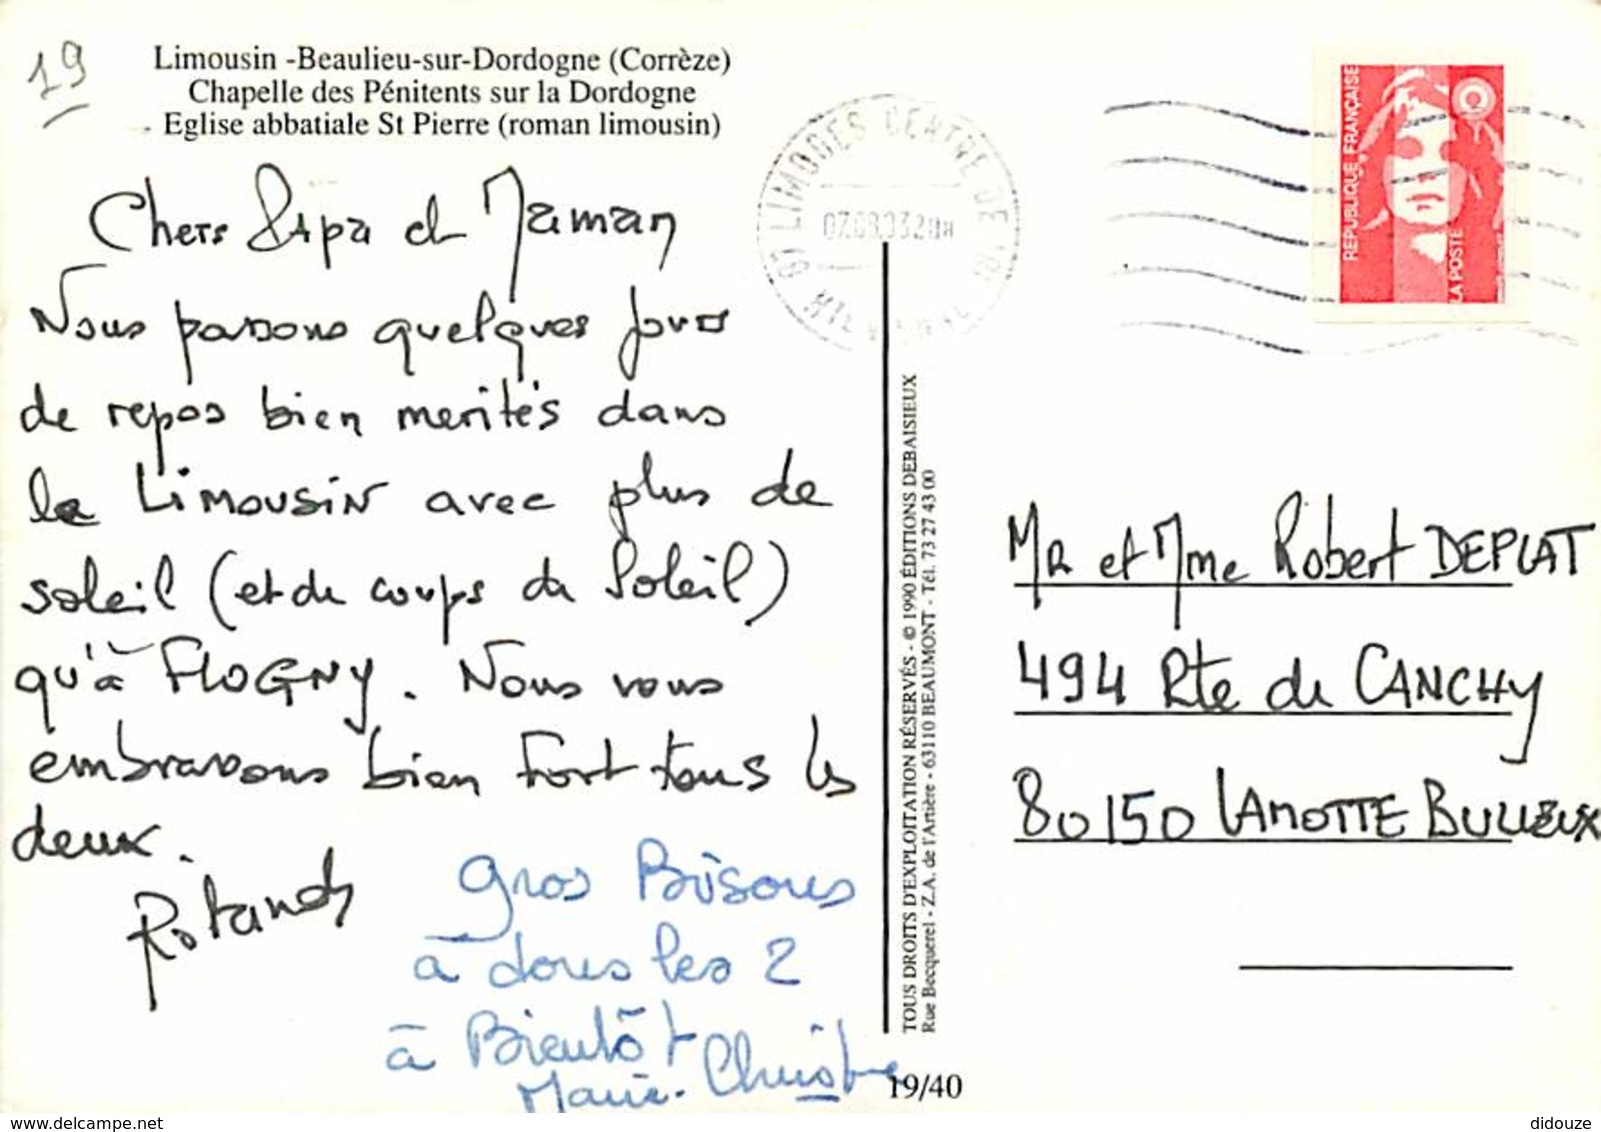 19
Limousin -Beaulieu-sur-Dordogne (Corrèze)
Chapelle des Pénitents sur la Dordogne
Eglise abbatiale St Pierre (roman limousin)
Chers Papa et Maman
Nous passons quelques jours
de repos bien merités dans
le Limousin avec plus de
soleil (et de coups de Soleil)
qu'à FLOGNY. Nous vous
embrassons bien fort tous les
deux.
gros Bisous
à tous les 2
à Bientôt
Marie-Christine
LIMOGES CENTRE DE TRI
REPUBLIQUE FRANÇAISE
LA POSTE
TOUS DROITS D'EXPLOITATION RÉSERVÉS - © 1990 ÉDITIONS DEBAISIEUX
Rue Becquerel - Z.A. de l'Artière - 63110 BEAUMONT - Tél. 73 27 43 00
MR et Mme Robert DEPLAT
494 Rte de CANCHY
80150 LAMOTTE BULLEUX
19/40
www.delcampe.net
didouze